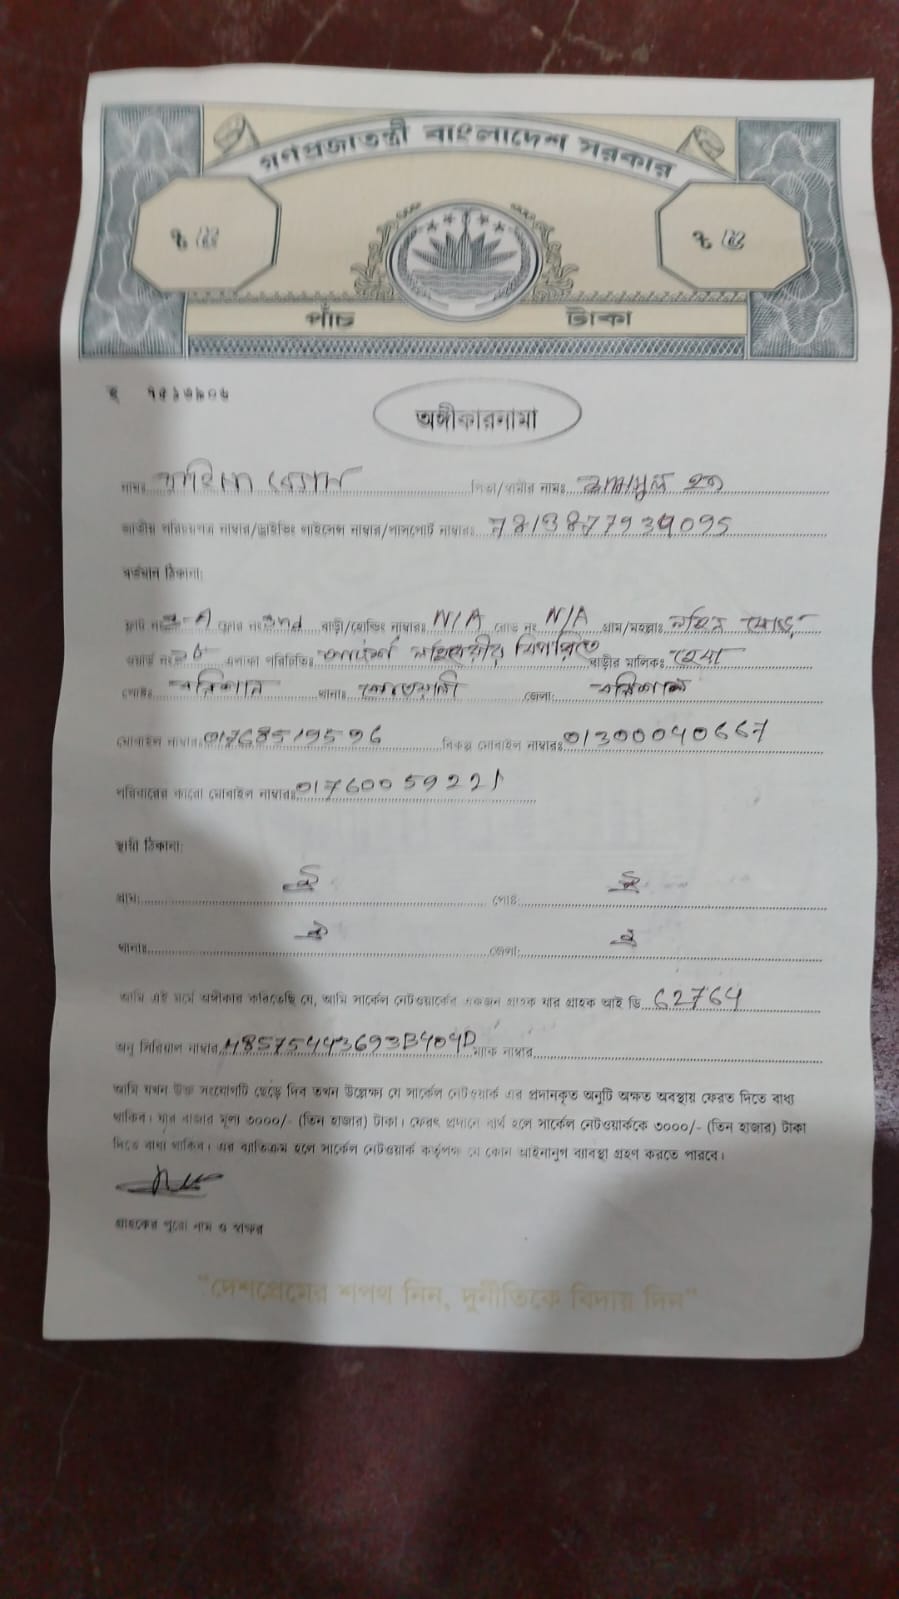 গণপ্রজাতন্ত্রী বাংলাদেশ সরকার
৳ ৫ ৳ ৫
পাঁচ টাকা
অঙ্গীকারনামা
নামঃ পিতা/স্বামীর নামঃ হক
জাতীয় পরিচয়পত্র নাম্বার/ড্রাইভিং লাইসেন্স নাম্বার/পাসপোর্ট নাম্বারঃ 7819877934095
বর্তমান ঠিকানা:
ফ্ল্যাট নং 2-A ফ্লোর নং 2nd বাড়ী/হোল্ডিং নাম্বারঃ N/A রোড নং N/A গ্রাম/মহল্লাঃ
ওয়ার্ড নং এলাকা পরিচিতিঃ বিপরিতে বাড়ীর মালিকঃ
পোষ্টঃ বরিশাল থানাঃ কোতয়ালী জেলা: বরিশাল
মোবাইল নাম্বারঃ 01768519596 বিকল্প মোবাইল নাম্বারঃ 01300040667
পরিবারের কারো মোবাইল নাম্বারঃ 01760059221
স্থায়ী ঠিকানা:
গ্রাম: ঐ পোষ্ট: ঐ
থানাঃ ঐ জেলা: ঐ
আমি এই মর্মে অঙ্গীকার করিতেছি যে, আমি সার্কেল নেটওয়ার্কের একজন গ্রাহক যার গ্রাহক আই ডি 62764
অনু সিরিয়াল নাম্বার 48575443693B404D ম্যাক নাম্বার
আমি যখন উক্ত সংযোগটি ছেড়ে দিব তখন উল্লেক্ষ্য যে সার্কেল নেটওয়ার্ক এর প্রদানকৃত অনুটি অক্ষত অবস্থায় ফেরত দিতে বাধ্য
থাকিব। যার বাজার মূল্য ৩০০০/- (তিন হাজার) টাকা। ফেরৎ প্রদানে ব্যর্থ হলে সার্কেল নেটওয়ার্ককে ৩০০০/- (তিন হাজার) টাকা
দিতে বাধ্য থাকিব। এর ব্যতিক্রম হলে সার্কেল নেটওয়ার্ক কর্তৃপক্ষ যে কোন আইনানুগ ব্যাবস্থা গ্রহণ করতে পারবে।
গ্রাহকের পুরো নাম ও স্বাক্ষর
"দেশপ্রেমের শপথ নিন, দুর্নীতিকে বিদায় দিন"